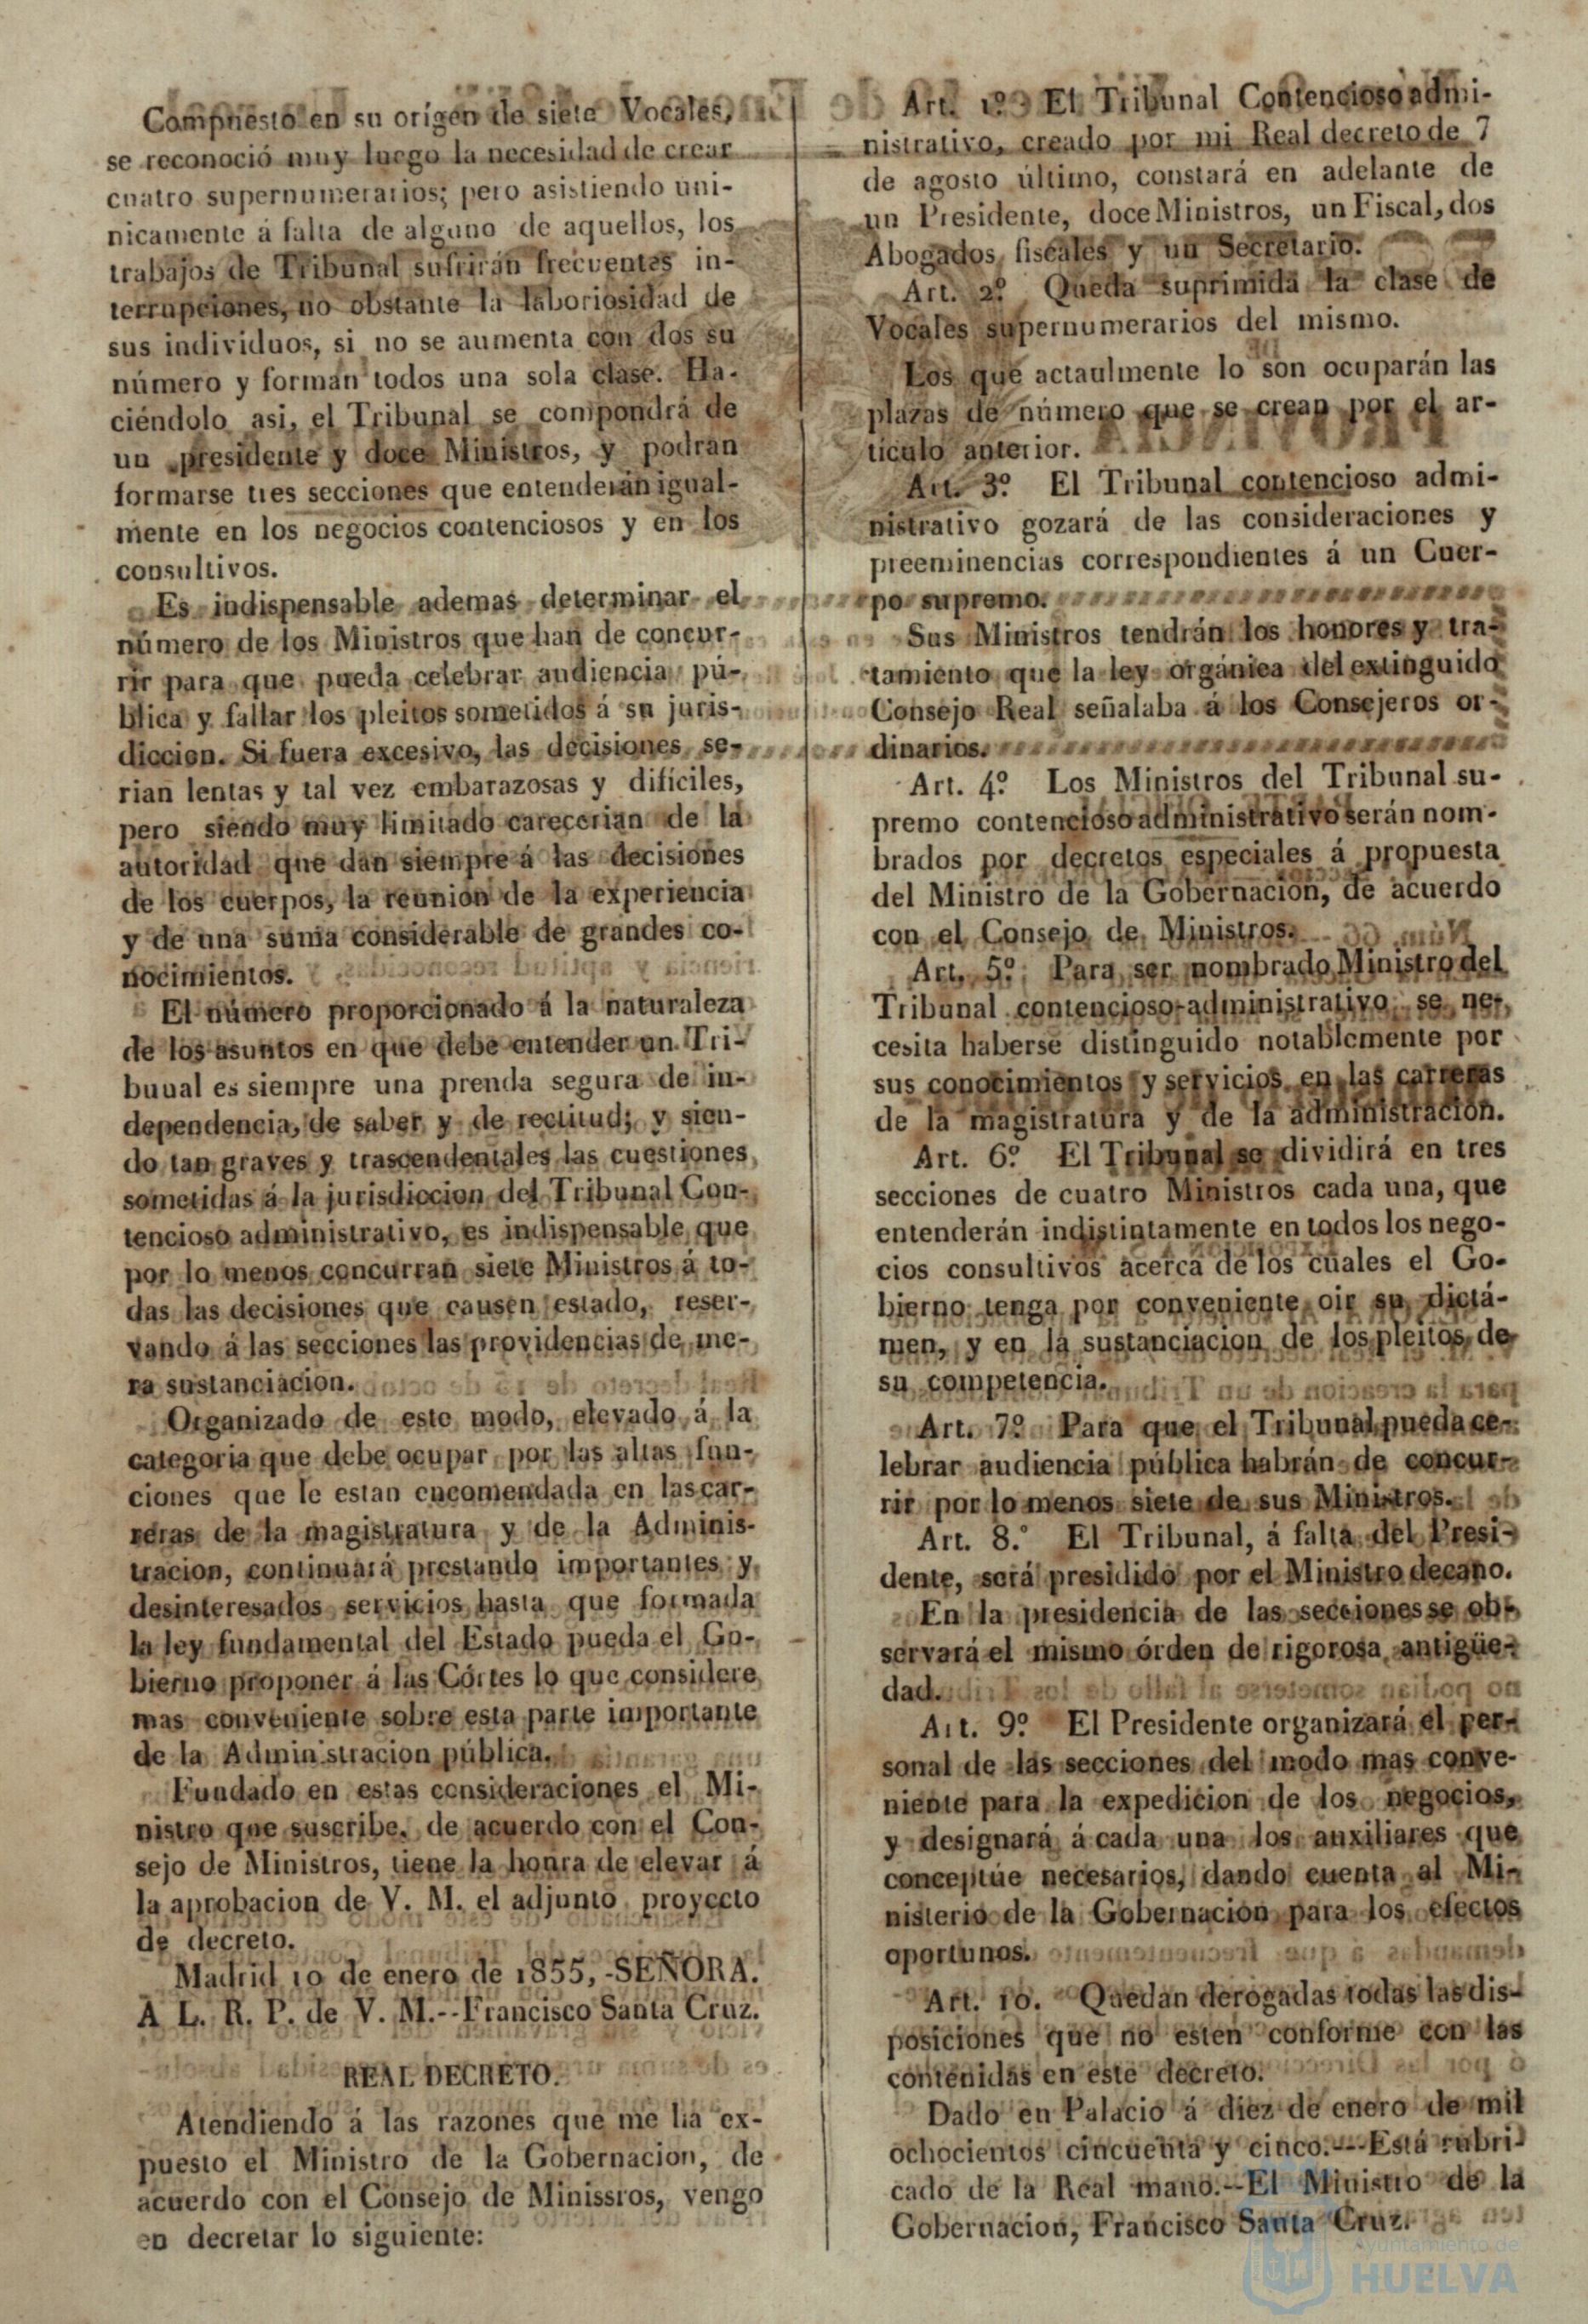 Compuesto en su orígen de siete Vocales,
se reconoció muy luego la necesidad de crear
cuatro supernumerarios; pero asistiendo uni-
nicamente á falta de alguno de aquellos, los
trabajos de Tribunal sufrirán frecuentes in-
terrupciones, no obstante la laboriosidad de
sus individuos, si no se aumenta con dos su
número y forman todos una sola clase. Ha-
ciéndolo asi, el Tribunal se compondrá de
un presidente y doce Ministros, y podran
formarse tres secciones que entenderán igual-
mente en los negocios contenciosos y en los
consultivos.
Es indispensable ademas determinar el
número de los Ministros que han de concur-
rir para que pueda celebrar audiencia pú-
blica y fallar los pleitos sometidos á su juris-
diccion. Si fuera excesivo, las decisiones se-
rian lentas y tal vez embarazosas y dificiles,
pero siendo muy limitado carecerian de la
autoridad que dan siempre á las decisiones
de los cuerpos, la reunion de la experiencia
y de una suma considerable de grandes co-
nocimientos.
El número proporcionado á la naturaleza
de los asuntos en que debe entender un Tri-
buual es siempre una prenda segura de in-
dependencia, de saber y de rectitud; y sien-
do tan graves y trascendentales las cuestiones
sometidas á la jurisdiccion del Tribunal Con-
tencioso administrativo, es indispensable que
por lo menos concurran siete Ministros á to-
das las decisiones que causen estado, reser-
vando á las secciones las providencias de me-
ra sustanciacion.
Organizado de este modo, elevado á la
categoria que debe ocupar por las altas fun-
ciones que le estan encomendada en las car-
reras de la magistratura y de la Adminis-
tracion, continuará prestando importantes y
desinteresados servicios hasta que formada
la ley fundamental del Estado pueda el Go-
bierno proponer á las Córtes lo que considere
mas conveniente sobre esta parte importante
de la Administracion pública.
Fundado en estas consideraciones el Mi-
nistro que suscribe, de acuerdo con el Con-
sejo de Ministros, tiene la honra de elevar á
la aprobacion de V. M. el adjunto proyecto
de decreto.
Madrid 10 de enero de 1855,-SEÑORA.
A L. R. P. de V. M.--Francisco Santa Cruz.
REAL DECRETO.
Atendiendo á las razones que me ha ex-
puesto el Ministro de la Gobernacion, de
acuerdo con el Consejo de Minissros, vengo
en decretar lo siguiente:
Art. 1º El Tribunal Contencioso admi-
nistrativo, creado por mi Real decreto de 7
de agosto último, constará en adelante de
un Presidente, doce Ministros, un Fiscal, dos
Abogados fiscales y un Secretario.
Art. 2º Queda suprimida la clase de
Vocales supernumerarios del mismo.
Los que actaulmente lo son ocuparán las
plazas de número que se crean por el ar-
ticulo anterior.
Art. 3º El Tribunal contencioso admi-
nistrativo gozará de las consideraciones y
preeminencias correspondientes á un Cuer-
po supremo.
Sus Ministros tendrán los honores y tra-
tamiento que la ley orgánica del extinguido
Consejo Real señalaba á los Consejeros or-
dinarios.
Art. 4º Los Ministros del Tribunal su-
premo contencioso administrativo serán nom-
brados por decretos especiales á propuesta
del Ministro de la Gobernacion, de acuerdo
con el Consejo de Ministros.
Art. 5º Para ser nombrado Ministro del
Tribunal contencioso-administrativo se ne-
cesita haberse distinguido notablemente por
sus conocimientos y servicios en las carreras
de la magistratura y de la administracion.
Art. 6º El Tribunal se dividirá en tres
secciones de cuatro Ministros cada una, que
entenderán indistintamente en todos los nego-
cios consultivos acerca de los cuales el Go-
bierno tenga por conveniente oir su dictá-
men, y en la sustanciacion de los pleitos de
su competencia.
Art. 7º Para que el Tribunal pueda ce-
lebrar audiencia pública habrán de concur-
rir por lo menos siete de sus Ministros.
Art. 8.º El Tribunal, á falta del Presi-
dente, será presidido por el Ministro decano.
En la presidencia de las secciones se ob-
servará el mismo órden de rigorosa antigüe-
dad.
Art. 9º El Presidente organizará el per-
sonal de las secciones del modo mas conve-
niente para la expedicion de los negocios,
y designará á cada una los auxiliares que
conceptúe necesarios, dando cuenta al Mi-
nisterio de la Gobernacion para los efectos
oportunos.
Art. 10. Quedan derogadas todas las dis-
posiciones que no esten conforme con las
contenidas en este decreto.
Dado en Palacio á diez de enero de mil
ochocientos cincuenta y cinco.---Está rubri-
cado de la Real mano.--El Ministro de la
Gobernacion, Francisco Santa Cruz.
Ayuntamiento de
HUELVA